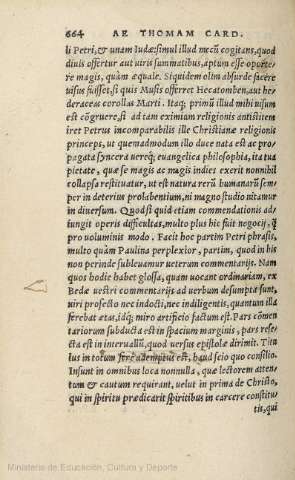 664 AE THOMAM CARD.
li Petri, & unam Iudæ: simul illud mecũ cogitans, quod
diuis offertur aut uiris summatibus, aptum esse oporte-
re magis, quàm æquale. Siquidem olim absurde facere
uisus fuisset, si quis Musis offerret Hecatomben, aut he-
deraceas corollas Marti. Itaq; primũ illud mihi uisum
est cõgruere, si ad tam eximium religionis antistitem
iret Petrus incomparabilis ille Christianæ religionis
princeps, ut quemadmodum illo duce nata est ac pro-
pagata syncera uereq; euangelica philosophia, ita tua
pietate, quæ se magis ac magis indies exerit nonnihil
collapsa restituatur, ut est natura rerũ humanarũ sem-
per in deterius prolabentium, ni magno studio nitamur
in diuersum. Quodsi quid etiam commendationis ad-
iungit operis difficultas, multo plus hic fuit negocij, q̃
pro uoluminis modo. Facit hoc partim Petri phrasis,
multo quàm Paulina perplexior, partim, quod in his
non perinde subleuamur ueterum commentarijs. Nam
quos hodie habet glosa, quam uocant ordinariam, ex
Bedæ uestri commentarijs ad uerbum desumpta sunt,
uiri profecto nec indocti, nec indiligentis, quantum illa
ferebat ætas, idq; miro artificio factum est. Pars cõmen
tariorum subducta est in spacium marginis, pars reie-
cta est in interuallũ, quod uersus epistolæ dirimit. Titu
lus in totum fere ademptus est, haud scio quo consilio.
Insunt in omnibus loca nonnulla, quæ lectorem atten-
tum & cautum requirant, uelut in prima de Christo,
qui in spiritu prædicarit spiritibus in carcere constitu
tis, qui
Ministerio de Educación, Cultura y Deporte